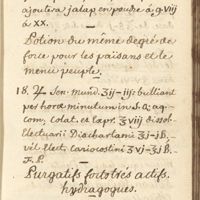 ajoutera jalap en poudre à g. viij
à xx.
Potion du même degré de
force pour les païsans et le
menu peuple.
18. ♃ Sen. mund. ʒij–iijs bulliant
per horæ minutum in s.q. aq
com, colat. et expr. ℥viij dissol
Electuarii Diacharlami ʒj–jß,
vel Elect. cariocostini ʒvj–℥jß.
F. P.
Purgatifs forts très actifs,
hydragogues.